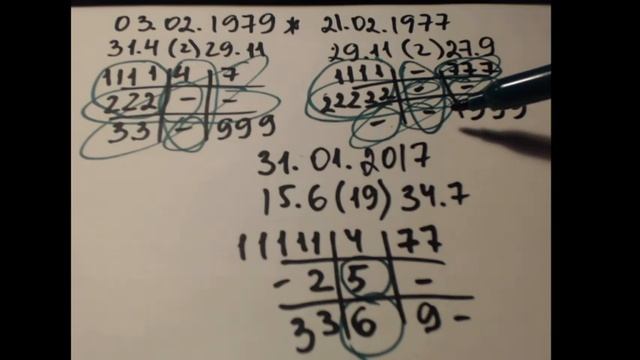 03.02.1979 * 21.02.1977
31.4 (2) 29.11 29.11 (2) 27.9
1111 4 7 1111 - 777
222 - - 22222 - -
33 - 999 - - 999
31.01.2017
15.6 (19) 34.7
11111 4 77
- 2 5 -
33 6 9 -